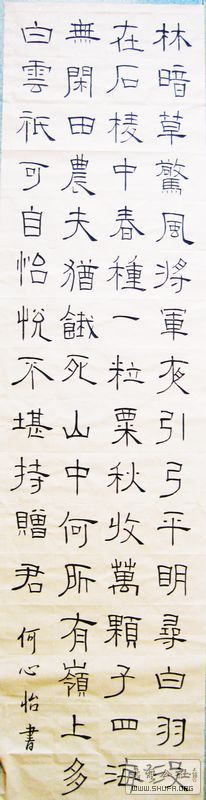 林暗草驚風將軍夜引弓平明尋白羽
在石棱中春種一粒粟秋收萬顆子四海
無閑田農夫猶餓死山中何所有嶺上多
白雲祇可自怡悅不堪持贈君
何心怡書